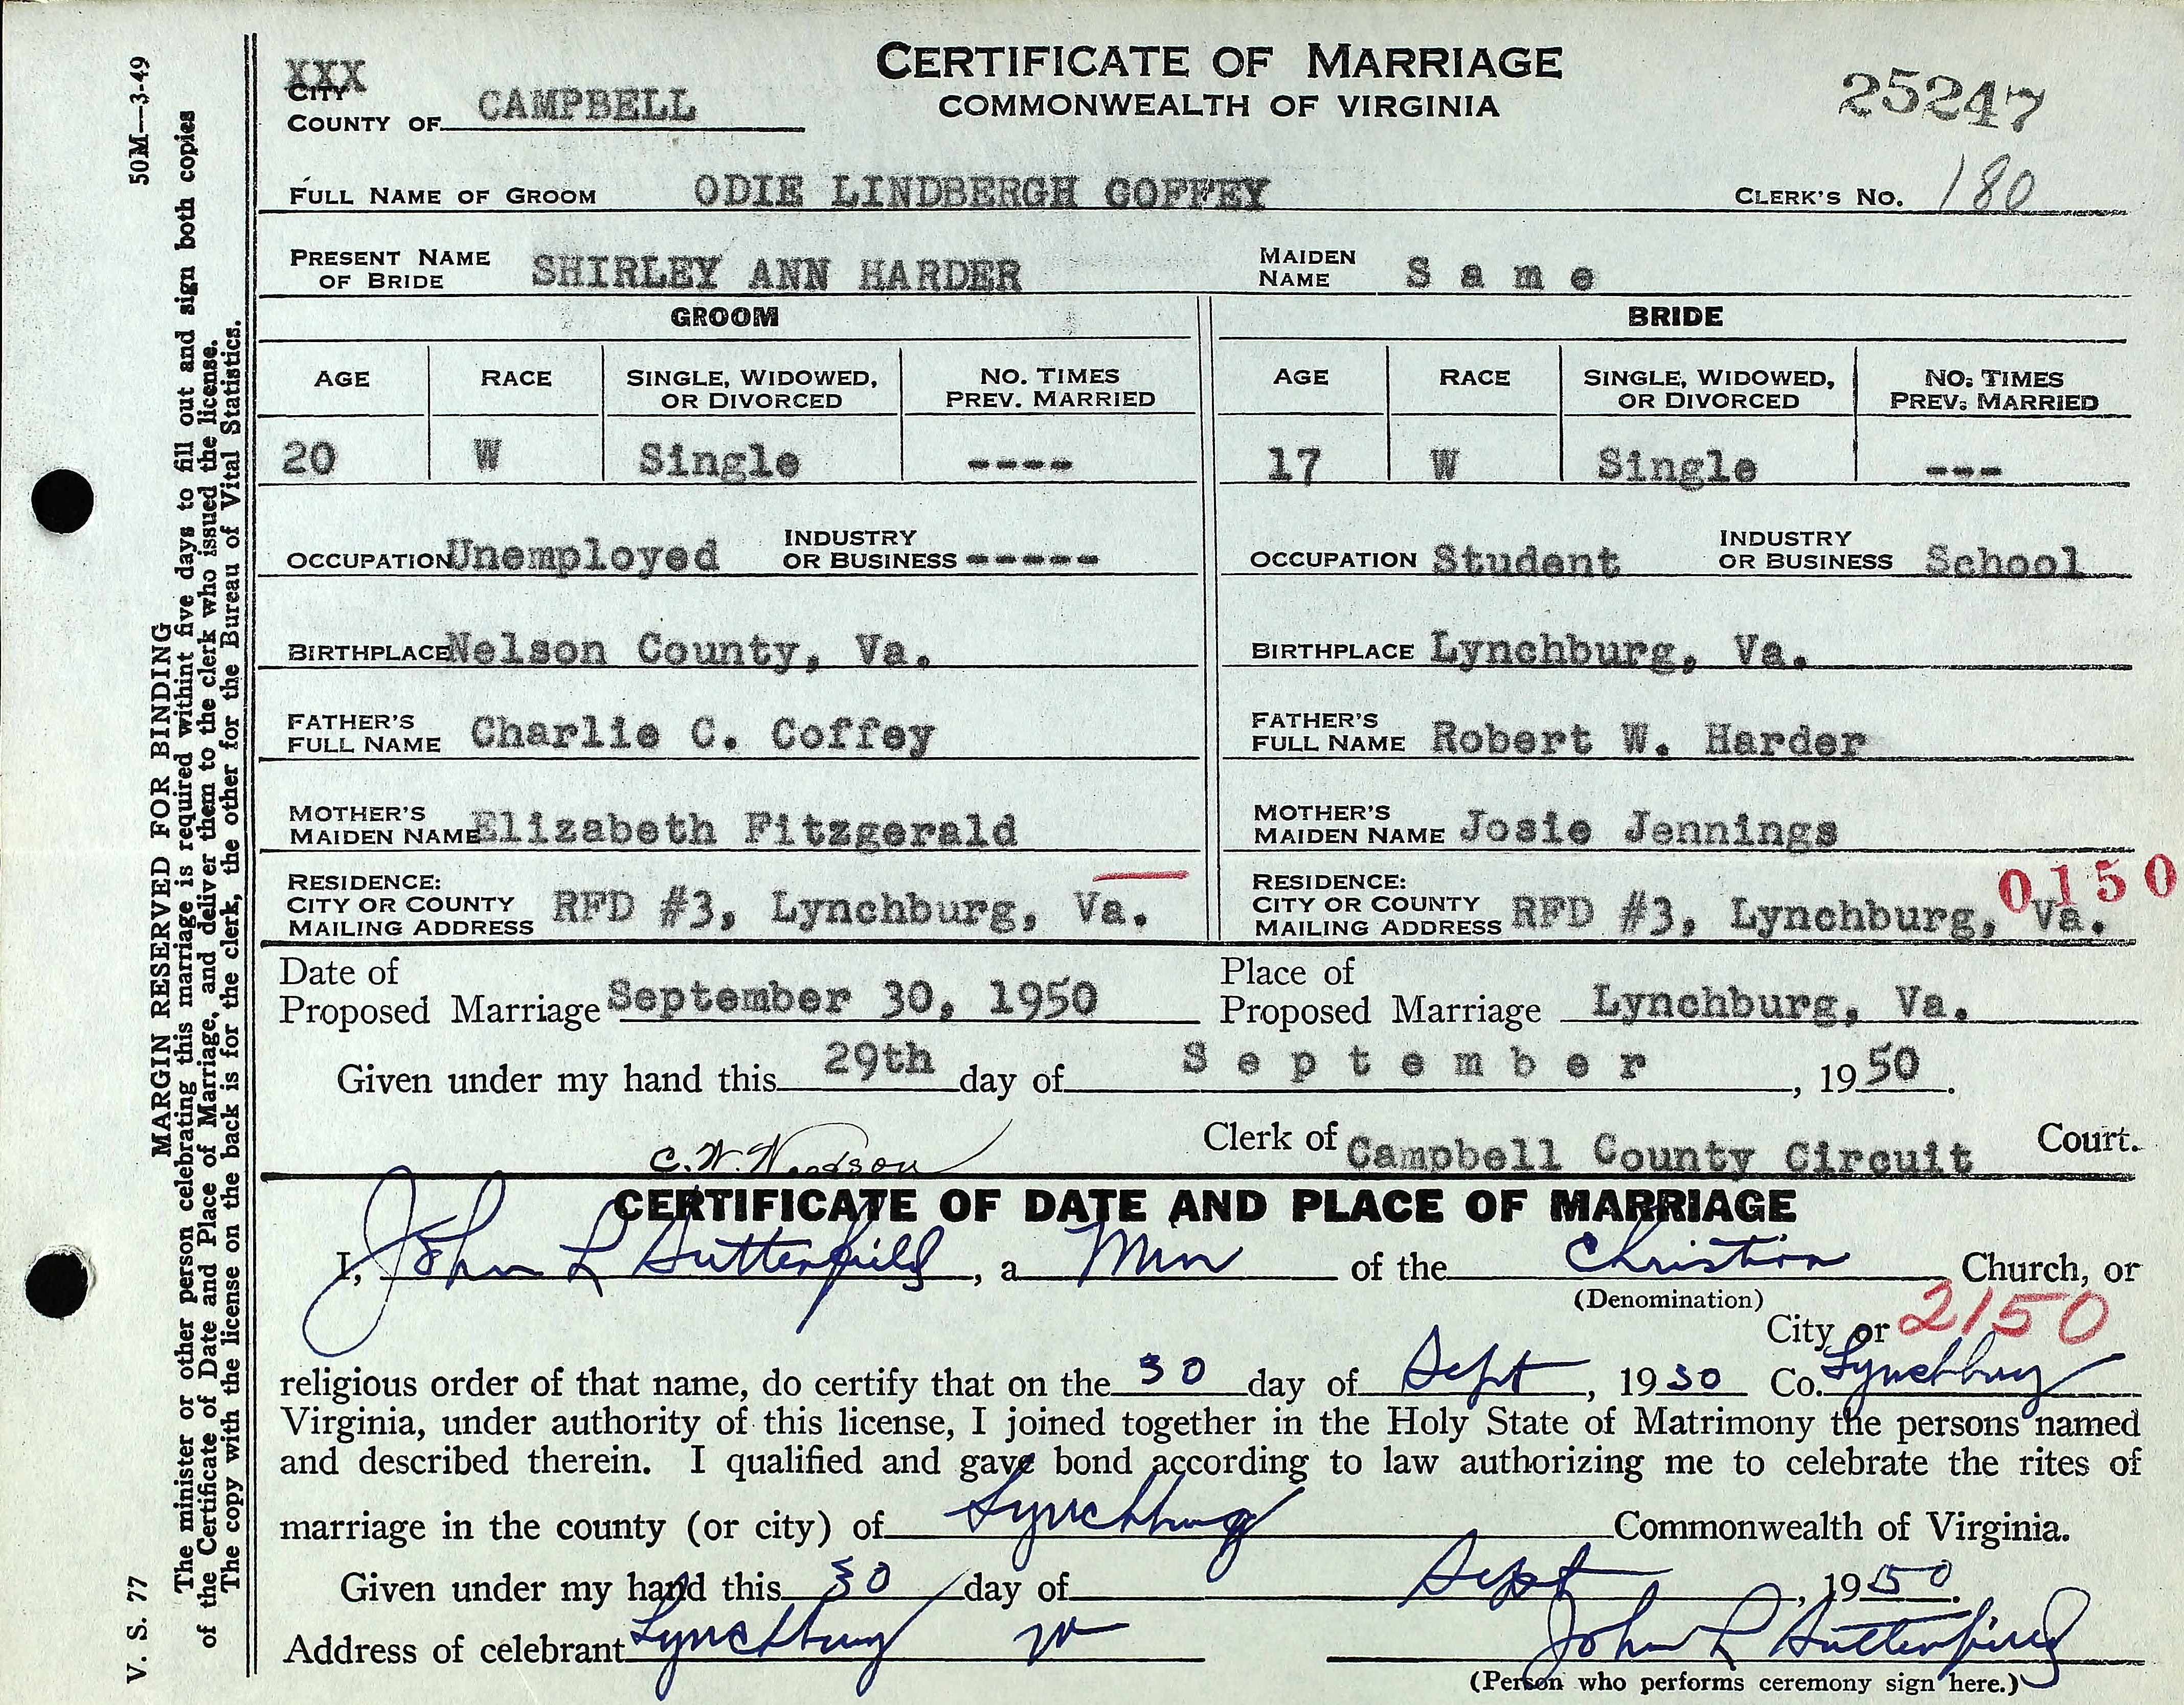 50M—3-49
MARGIN RESERVED FOR BINDING
The minister or other person celebrating this marriage is required withint five days to fill out and sign both copies
of the Certificate of Date and Place of Marriage, and deliver them to the clerk who issued the license.
The copy with the license on the back is for the clerk, the other for the Bureau of Vital Statistics.
V. S. 77
CERTIFICATE OF MARRIAGE
COMMONWEALTH OF VIRGINIA
25247
XXX
CITY
COUNTY OF CAMPBELL
FULL NAME OF GROOM ODIE LINDBERGH COFFEY CLERK'S NO. 180
PRESENT NAME OF BRIDE SHIRLEY ANN HARDER MAIDEN NAME S a m e
GROOM BRIDE
AGE RACE SINGLE, WIDOWED, OR DIVORCED NO. TIMES PREV. MARRIED AGE RACE SINGLE, WIDOWED, OR DIVORCED NO. TIMES PREV. MARRIED
20 W Single ---- 17 W Single ---
OCCUPATION Unemployed INDUSTRY OR BUSINESS ----- OCCUPATION Student INDUSTRY OR BUSINESS School
BIRTHPLACE Nelson County, Va. BIRTHPLACE Lynchburg, Va.
FATHER'S FULL NAME Charlie C. Coffey FATHER'S FULL NAME Robert W. Harder
MOTHER'S MAIDEN NAME Elizabeth Fitzgerald MOTHER'S MAIDEN NAME Josie Jennings
RESIDENCE: CITY OR COUNTY MAILING ADDRESS RFD #3, Lynchburg, Va. RESIDENCE: CITY OR COUNTY MAILING ADDRESS RFD #3, Lynchburg, Va. 0150
Date of Proposed Marriage September 30, 1950 Place of Proposed Marriage Lynchburg, Va.
Given under my hand this 29th day of S e p t e m b e r, 1950.
C. W. Woodson Clerk of Campbell County Circuit Court.
CERTIFICATE OF DATE AND PLACE OF MARRIAGE
I, John L, a Min of the Christian Church, or
(Denomination)
City or 2150
religious order of that name, do certify that on the 30 day of Sept, 1950 Co. Lynchburg
Virginia, under authority of this license, I joined together in the Holy State of Matrimony the persons named
and described therein. I qualified and gave bond according to law authorizing me to celebrate the rites of
marriage in the county (or city) of Lynchburg Commonwealth of Virginia.
Given under my hand this 30 day of Sept, 1950.
Address of celebrant Lynchburg John L
(Person who performs ceremony sign here.)